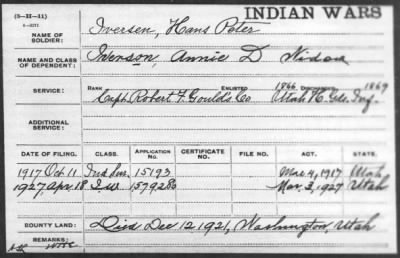 (3-II-11)
INDIAN WARS
NAME OF SOLDIER: Iversen, Hans Peter
NAME AND CLASS OF DEPENDENT: Iverson, Annie D. Widow
SERVICE: RANK ENLISTED 1866 DISCHARGED 1869
Capt Robert F. Gould's Co Utah Inf.
ADDITIONAL SERVICE:
DATE OF FILING. CLASS. APPLICATION NO. CERTIFICATE NO. FILE NO. ACT. STATE.
1917 Oct 11 Ind Sur. 15193 Mar 4, 1917 Utah
1927 Apr 18 I.W. 1579280 Mar 3, 1927 Utah
BOUNTY LAND: Died Dec 12 1921, Washington, Utah
REMARKS: